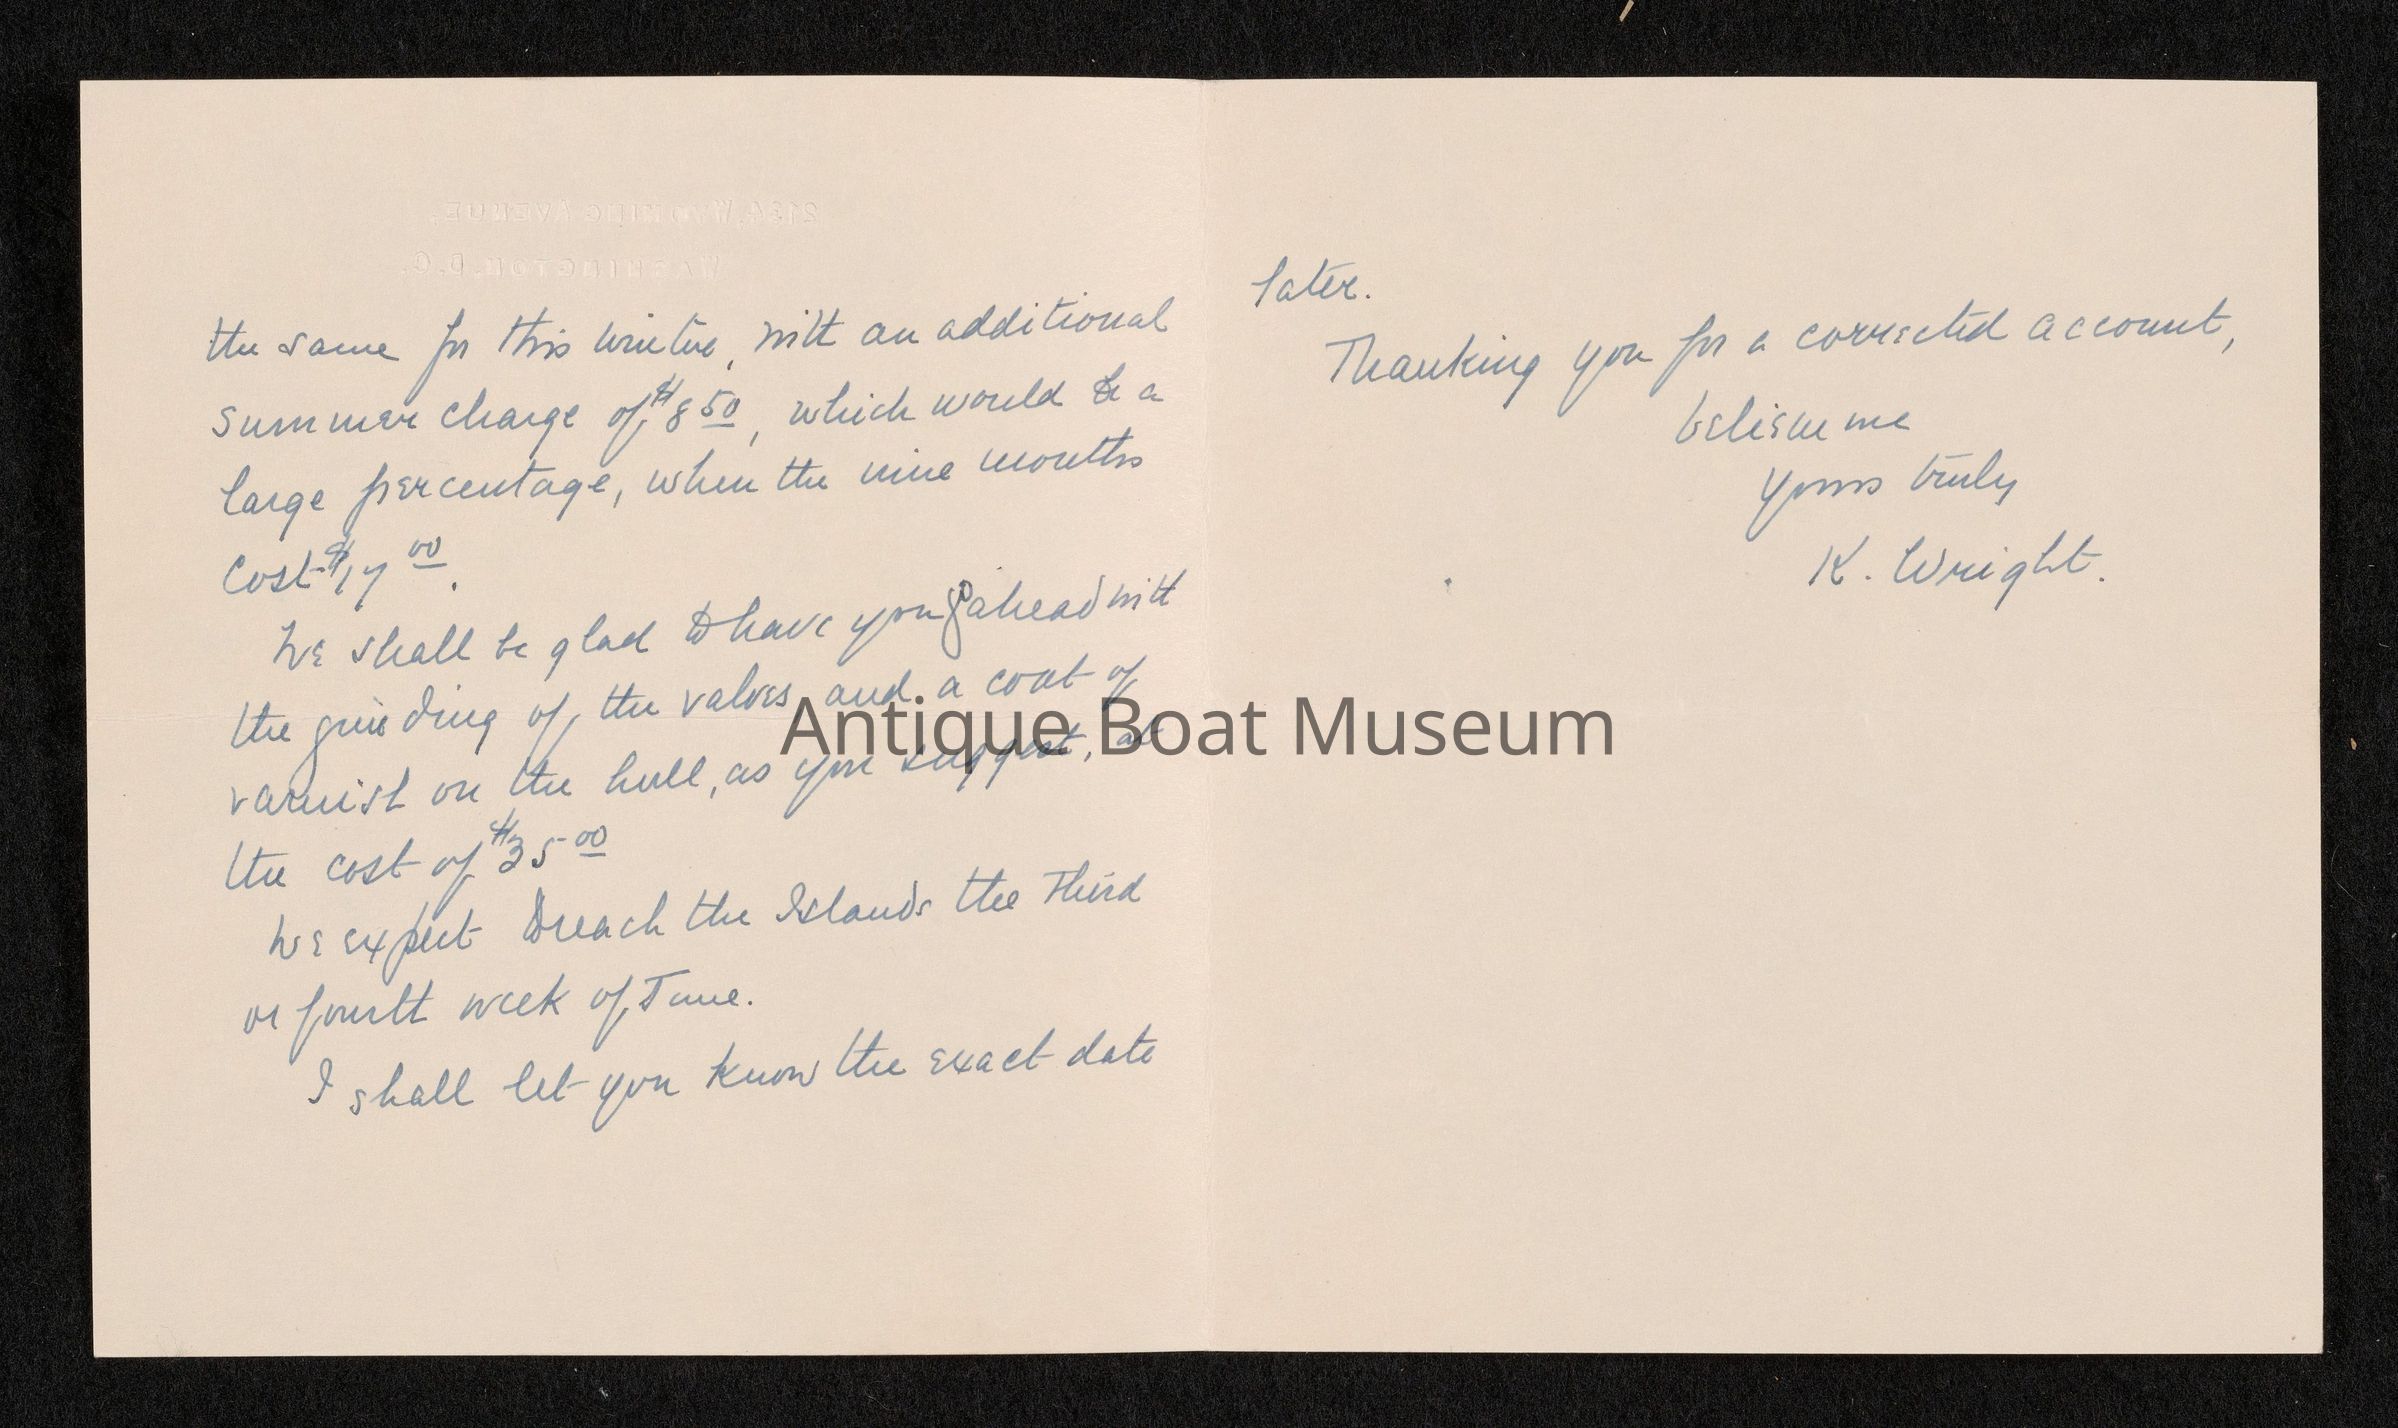 2134, WYOMING AVENUE,
WASHINGTON, D.C.
the same for this winter, with an additional
summer charge of $8 50, which would be a
large percentage, when the nine months
cost $17 00.
We shall be glad to have you go ahead with
the grinding of the valves and a coat of
varnish on the hull, as you suggest, at
the cost of $35 00
We expect to reach the Islands the third
or fourth week of June.
I shall let you know the exact date
later.
Thanking you for a corrected account,
believe me
yours truly
K. Wright.
Antique Boat Museum